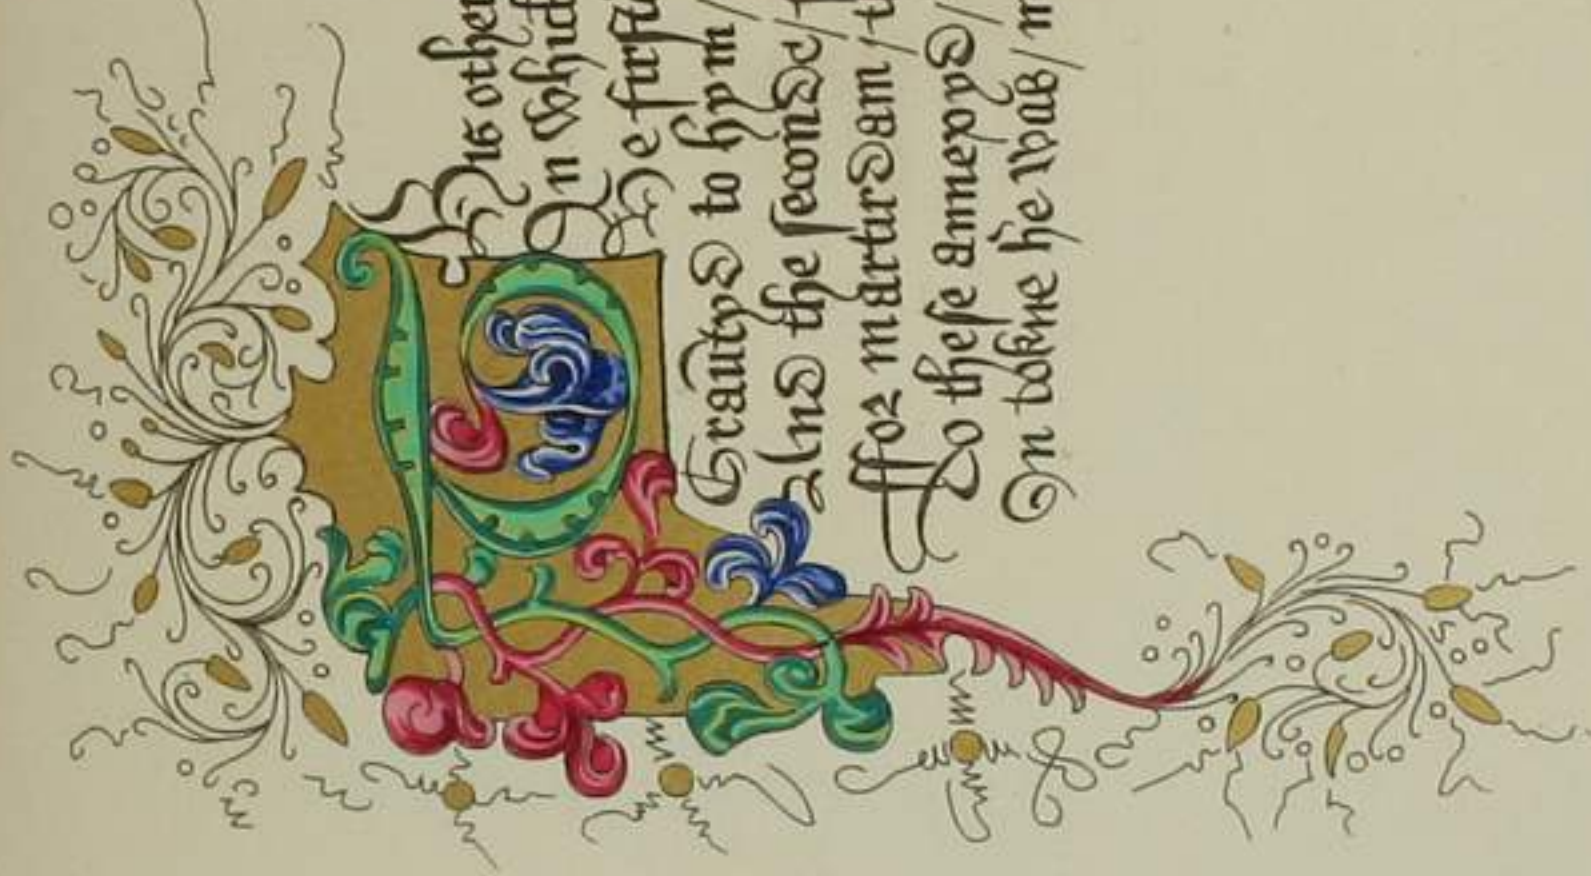 This other
In Which
The firſt
Grautyd to hym /
And the ſeconde /
ffor marturdam / t
To theſe annexyd /
In tokne he was / m